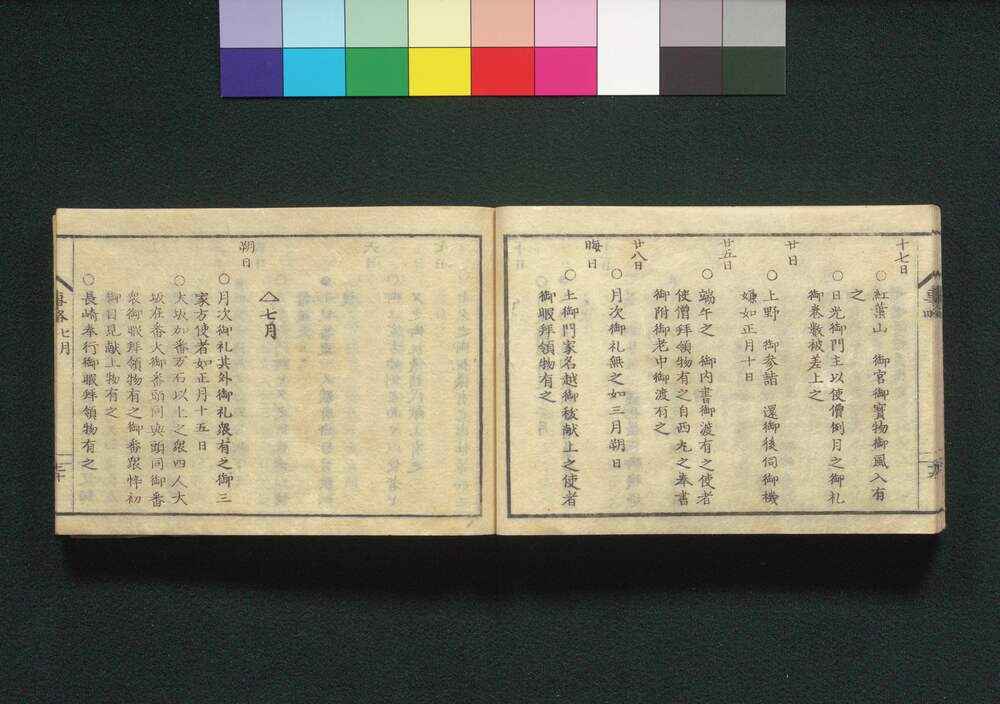 十七日
○紅葉山　御宮御寳物御風入有
之
○日光御門主以使僧例月之御礼
御巻數被差上之
廿日
○上野　御参詣　還御後伺御機
嫌如正月十日
廿五日
○端午之　御内書御渡有之使者
使僧拜領物有之自西丸之奉書
御附御老中御渡有之
廿八日
○月次御礼無之如三月朔日
晦日
○土御門家名越御秡献上之使者
御暇拜領物有之
△七月
朔日
○月次御礼其外御礼衆有之御三
家方使者如正月十五日
○大坂加番万石以上之衆四人大
坂在番大御番頭同與頭同御番
衆御暇拜領物有之御番衆悴初
御目見献上物有之
○長崎奉行御暇拜領物有之
七月
三十